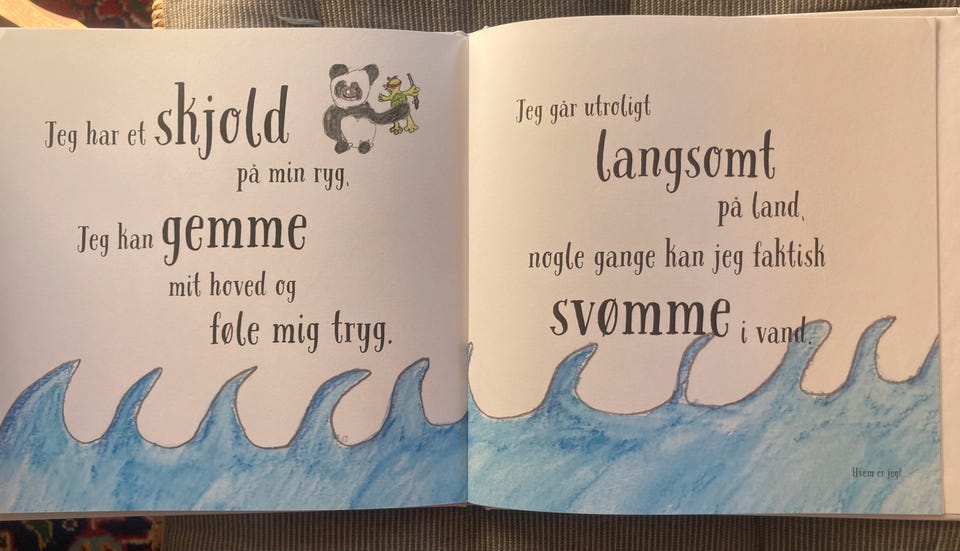 Jeg har et skjold
på min ryg,
Jeg kan gemme
mit hoved og
føle mig tryg.
Jeg går utroligt
langsomt
på land,
nogle gange kan jeg faktisk
svømme i vand.
Hvem er jeg?